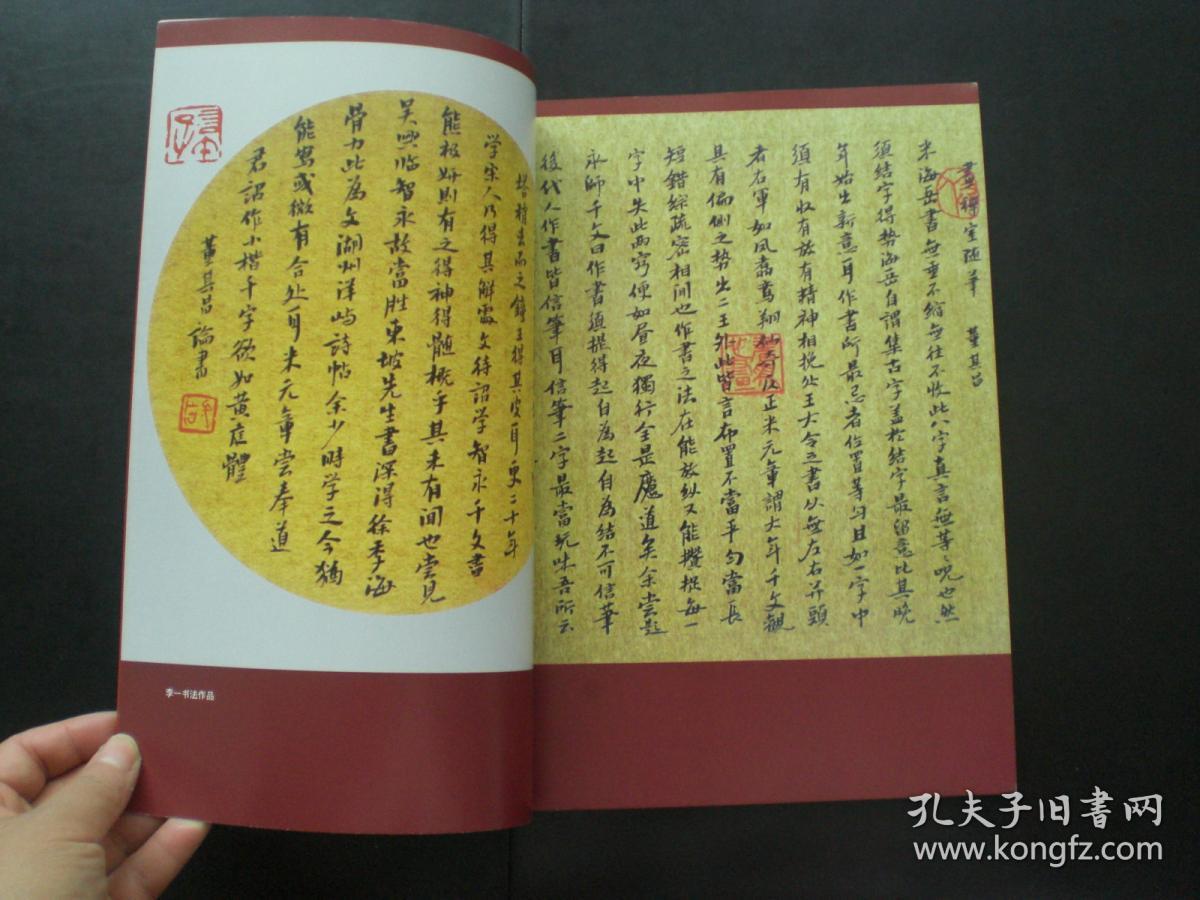 畫禪室随筆 董其昌
米海岳書無垂不縮無往不收此八字真言無等之咒也然
須結字得勢海岳自謂集古字盖於結字最留意比其晚
年始出新意耳作書所最忌者位置等匀且如一字中
須有收有放有精神相挽处王大令之書从無左右并頭
者右軍如凤翥鸞翔似奇反正米元章謂大年千文觀
其有偏側之勢出二王外此皆言布置不當平匀當長
短錯綜疏密相间也作書之法在能放纵又能攢捉每一
字中失此兩竅便如昼夜獨行全是魔道矣余嘗題
永師千文曰作書須提得起自為起自為结不可信筆
後代人作書皆信筆耳信筆二字最當玩味吾所云
去而之鍾王得其皮耳更二十年
学宋人乃得其解處文待詔学智永千文書
能极妍則有之得神得髓概乎其未有闻也嘗見
吴興临智永故當胜東坡先生書深得徐季海
骨力此為文湖州洋屿詩帖余少時学之今猶
能寫或微有合处耳米元章嘗奉道
君詔作小楷千字欲如黄庭體
董其昌論書
李一书法作品
孔夫子旧书网
www.kongfz.com